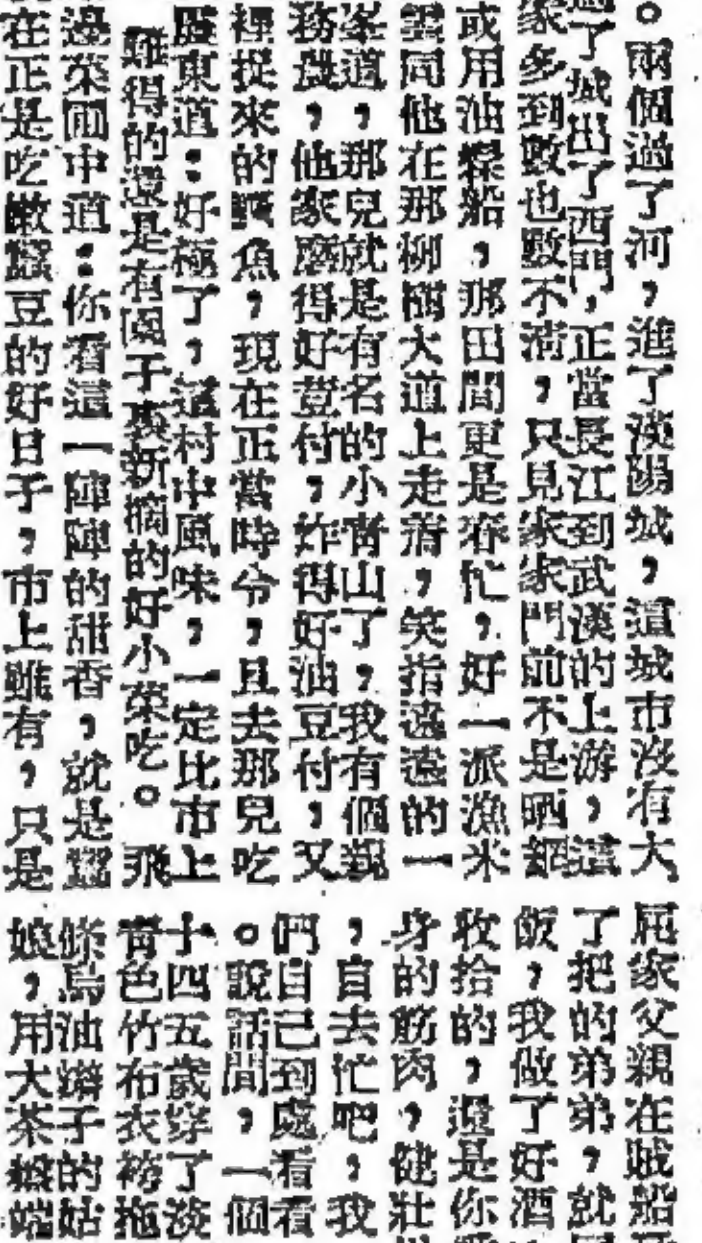 。兩個過了河，進了漢陽城，這城市沒有大
過了城出了西門，正當長江到武漢的上游，這
家多到數也數不清，只見家家門前不是晒網
或用油艌船，那田間更是春忙，好一派漁米
雲同他在那柳樹大道上走着，笑指遠遠的一
峯道，那兒就是有名的小青山了，我有個親
務農，他家磨得好荳付，炸得好油豆付，又
裡捉來的鱖魚，現在正當時令，且去那兒吃
屈東道：好極了，這村中風味，一定比市上
難得的還是有園子裏新摘的好小菜吃。飛
邊菜圃中道：你看這一陣陣的甜香，就是蠶
在正是吃嫩蠶豆的好日子，市上雖有，只是
屈家父親在賊船
了把的弟弟，就
飯，我做了好酒
收拾的，還是你
身的筋肉，健壯
，自去忙吧，我
們自己到處看看
。說話間，一個
十四五歲穿了淡
青色竹布衣袴拖
條烏油辮子的姑
娘，用大茶
端